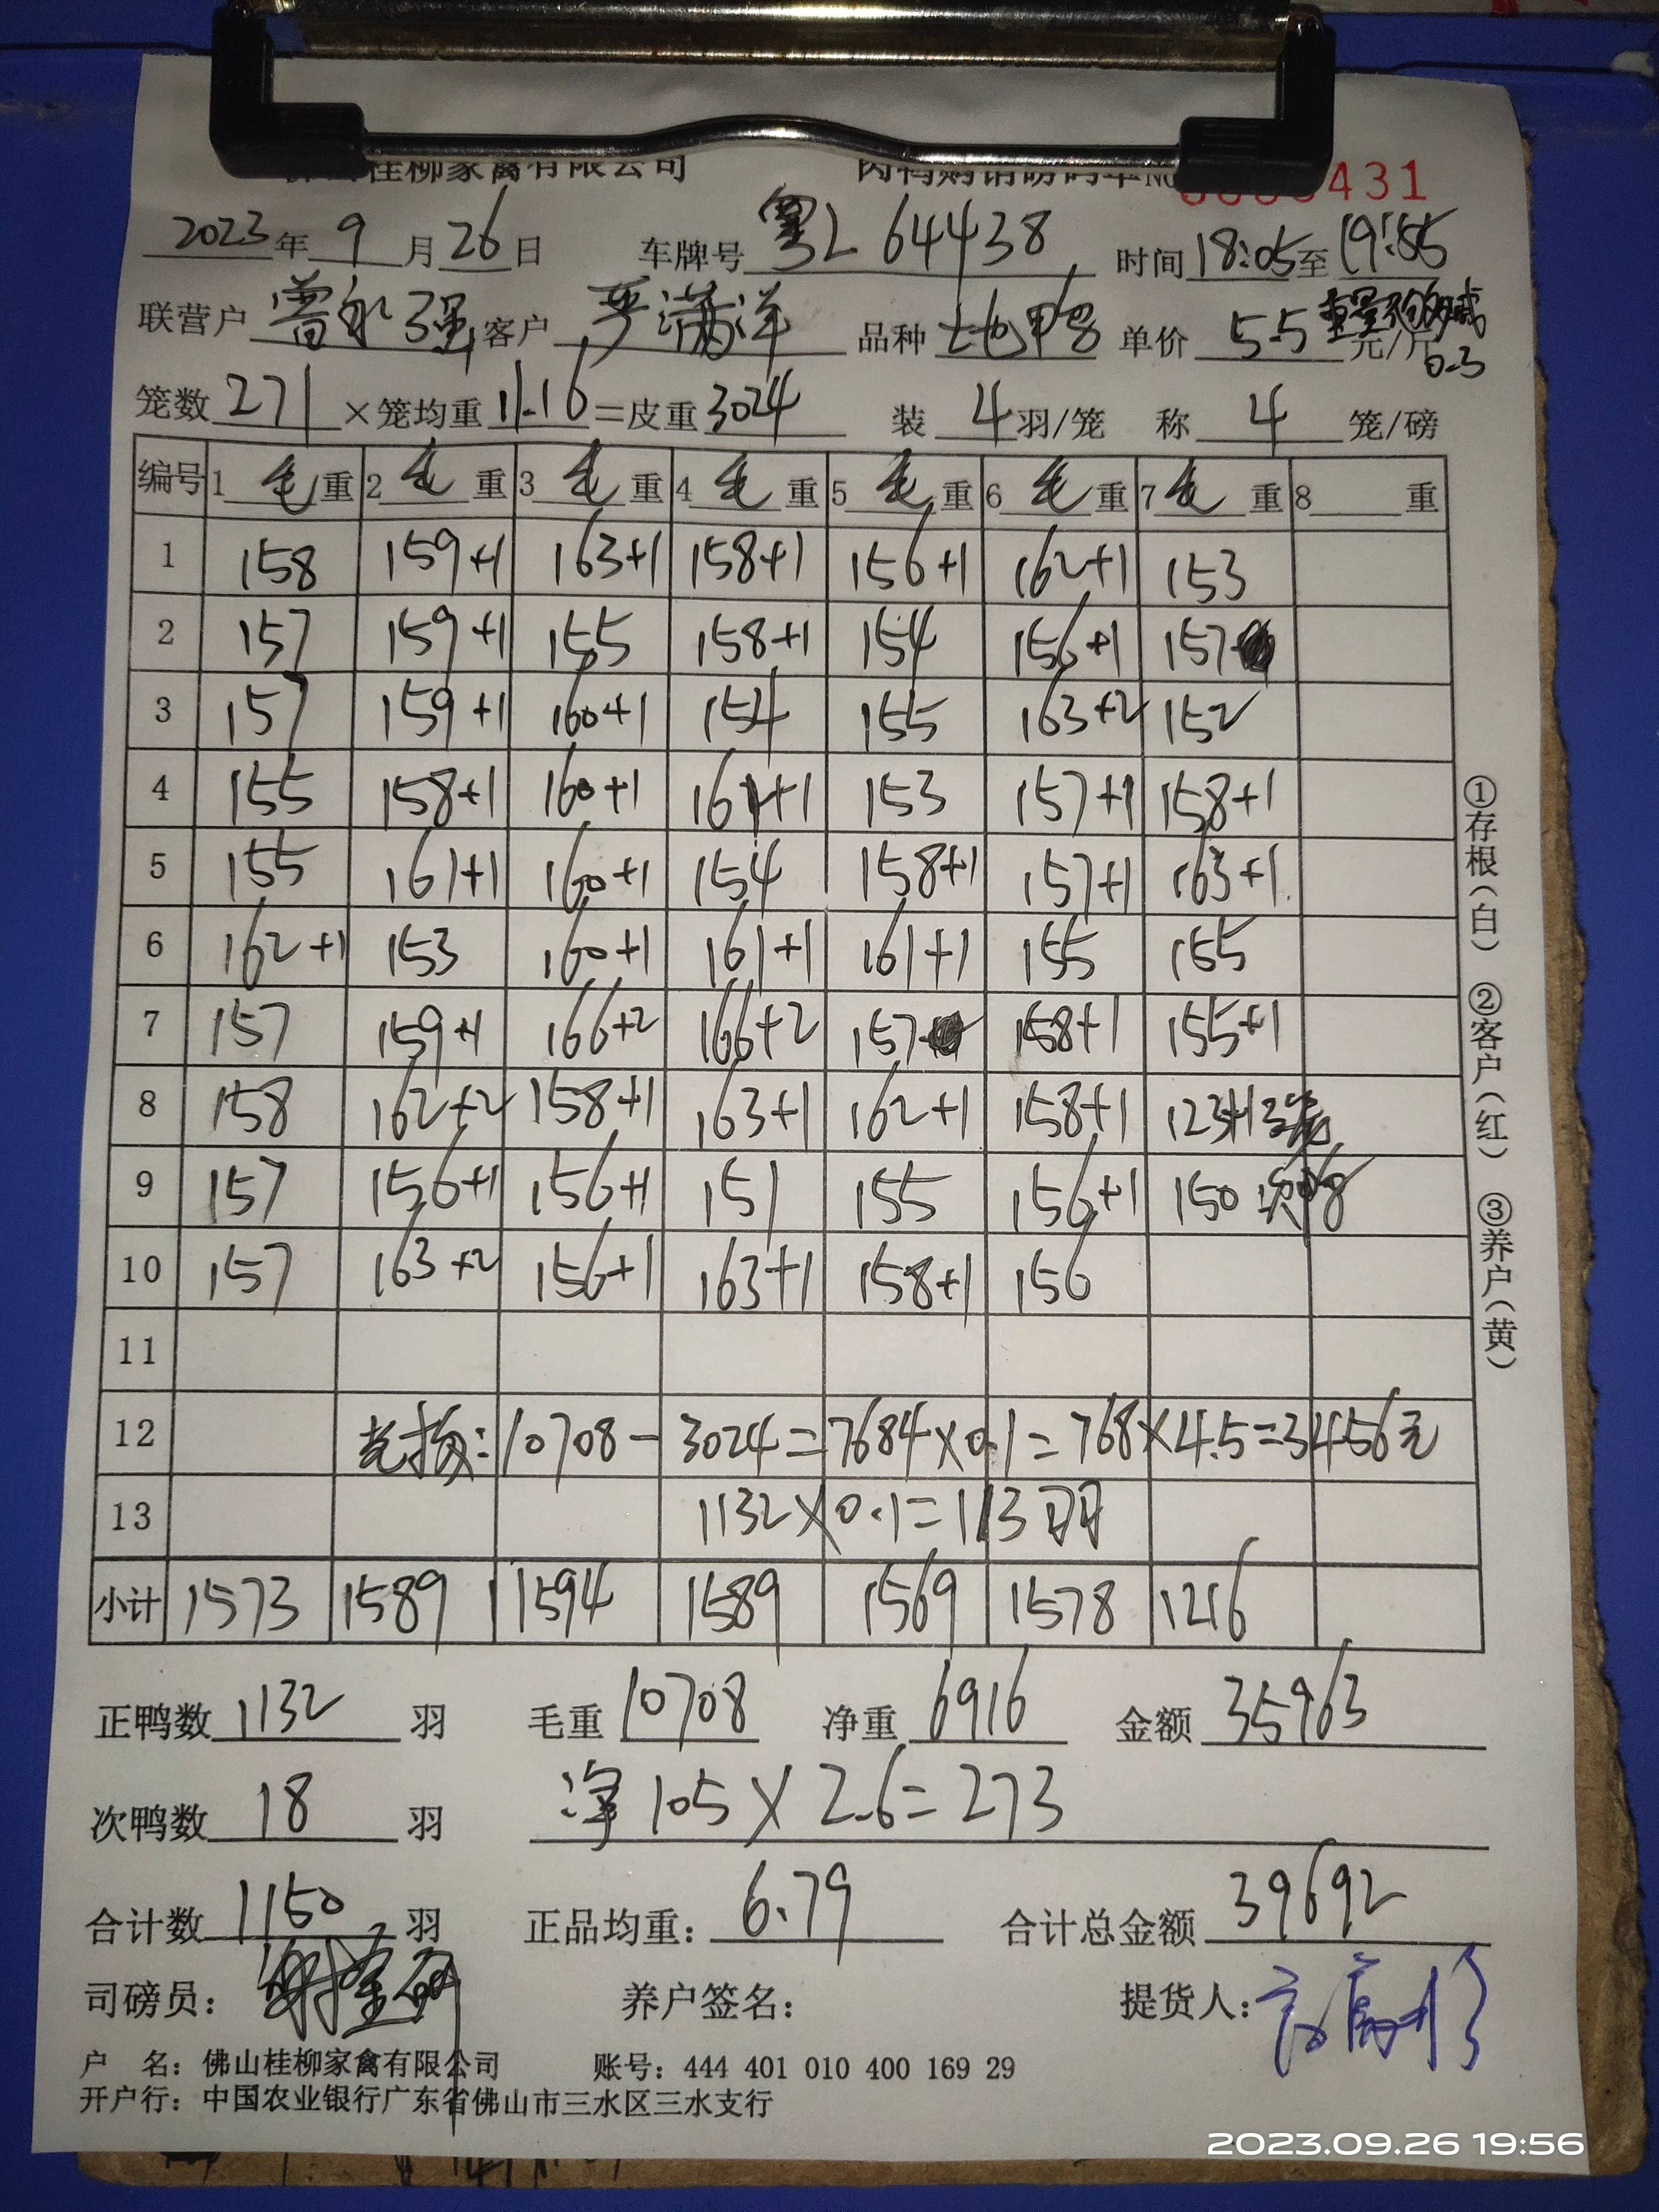 佛山桂柳家禽有限公司 肉鸭购销磅码单 No 431
2023年9月26日 车牌号 粤L 64438 时间 18:05至19:55
联营户 曾永强 客户 严满洋 品种 土地鸭 单价 5.5 元/斤 0.3
笼数 271 ×笼均重 11.16 =皮重 3024 装 4 羽/笼 称 4 笼/磅
编号 1 毛 重 2 毛 重 3 毛 重 4 毛 重 5 毛 重 6 毛 重 7 毛 重 8 重
1 158 159+1 163+1 158+1 156+1 162+1 153
2 157 159+1 155 158+1 154 156+1 157
3 157 159+1 160+1 154 155 163+2 152
4 155 158+1 160+1 161+1 153 157+1 158+1
5 155 161+1 160+1 154 158+1 157+1 163+1
6 162+1 153 160+1 161+1 161+1 155 155
7 157 159+1 166+2 166+2 157 158+1 155+1
8 158 162+2 158+1 163+1 162+1 158+1 123+1 3笼
9 157 156+1 156+1 151 155 156+1 150 次18
10 157 163+2 156+1 163+1 158+1 156
11
12 10708-3024=7684×0.1=768×4.5=3456元
13 1132×0.1=113羽
小计 1573 1589 1594 1589 1569 1578 1216
正鸭数 1132 羽 毛重 10708 净重 6916 金额 35963
次鸭数 18 羽 净105×2.6=273
合计数 1150 羽 正品均重： 6.79 合计总金额 39692
司磅员： 养户签名： 提货人：
户 名：佛山桂柳家禽有限公司 账号：444 401 010 400 169 29
开户行：中国农业银行广东省佛山市三水区三水支行
①存根（白） ②客户（红） ③养户（黄）
2023.09.26 19:56